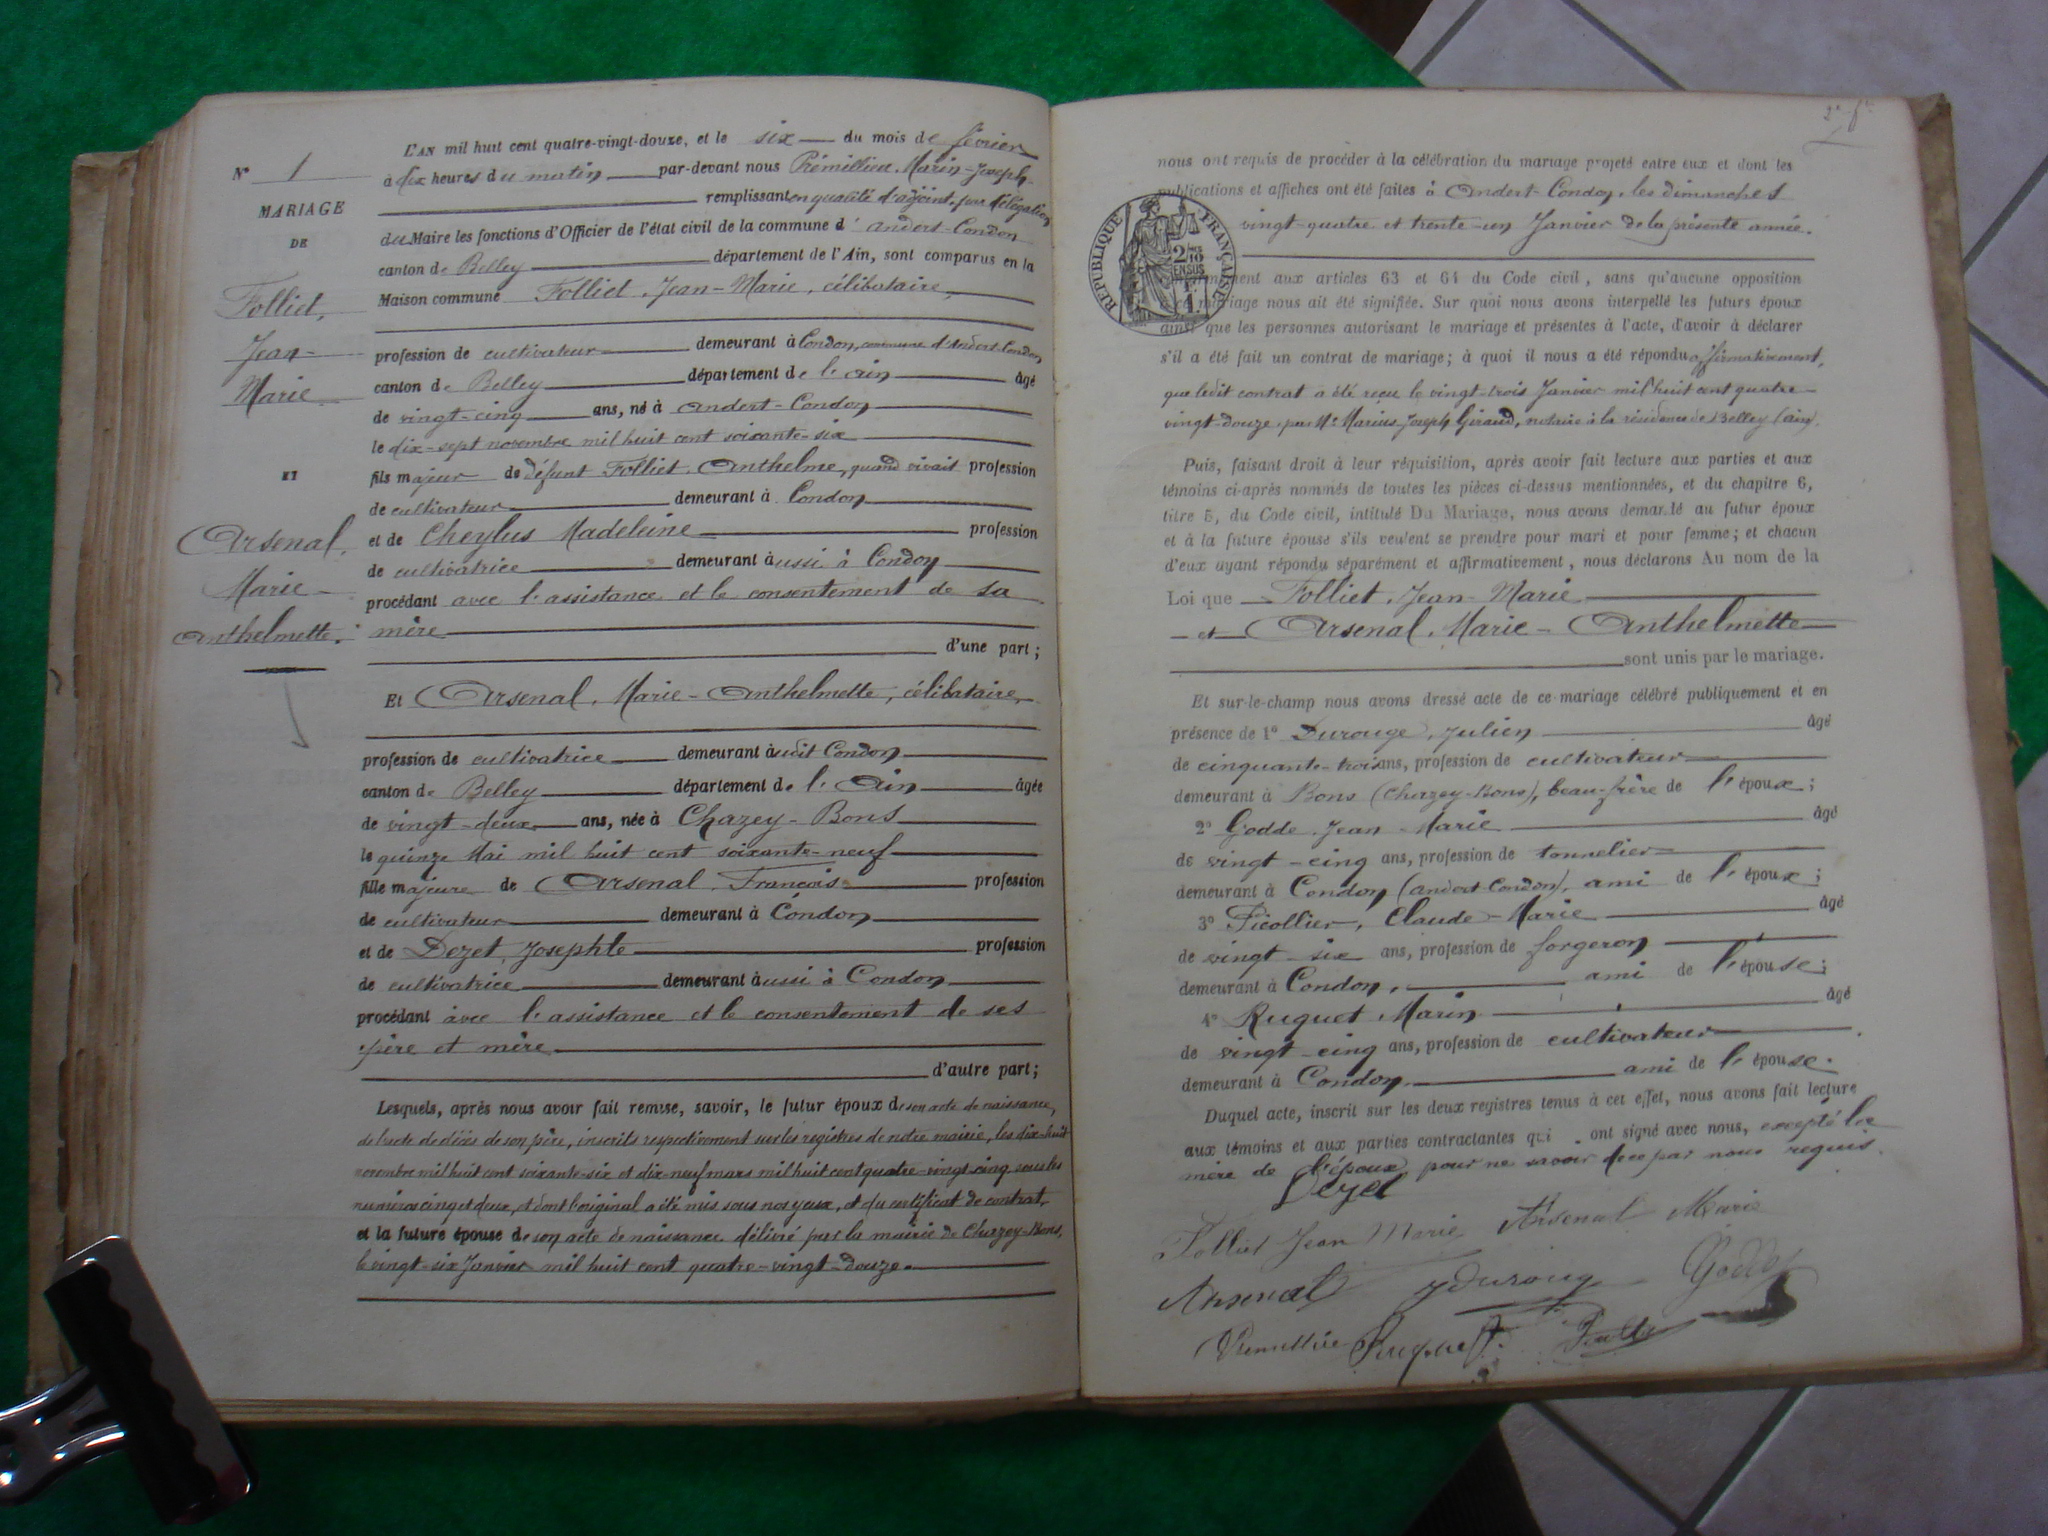 N° 1
MARIAGE
DE
Folliet,
Jean-
Marie
ET
Arsenal,
Marie-
Anthelmette.
L'AN mil huit cent quatre-vingt-douze, et le six du mois de février
à dix heures du matin par-devant nous Prémillieu, Marin-Joseph
remplissant en qualité d'adjoint, par délégation
du Maire les fonctions d'Officier de l'état civil de la commune d' Andert-Condon
canton de Belley département de l'Ain, sont comparus en la
Maison commune Folliet, Jean-Marie, célibataire,
profession de cultivateur demeurant à Condon, commune d'Andert-Condon
canton de Belley département de l'Ain âgé
de vingt-cinq ans, né à Andert-Condon
le dix-sept novembre mil huit cent soixante-six
fils majeur de défunt Folliet, Anthelme, quand vivait profession
de cultivateur demeurant à Condon
et de Cheylus Madeleine profession
de cultivatrice demeurant aussi à Condon
procédant avec l'assistance et le consentement de sa
mère
d'une part ;
Et Arsenal, Marie-Anthelmette, célibataire,
profession de cultivatrice demeurant audit Condon
canton de Belley département de l'Ain âgée
de vingt-deux ans, née à Chazey-Bons
le quinze Mai mil huit cent soixante-neuf
fille majeure de Arsenal, François profession
de cultivateur demeurant à Condon
et de Dezet, Josephte profession
de cultivatrice demeurant aussi à Condon
procédant avec l'assistance et le consentement de ses
père et mère
d'autre part ;
Lesquels, après nous avoir fait remise, savoir, le futur époux de son acte de naissance,
de l'acte de décès de son père, inscrits respectivement sur les registres de notre mairie, les dix-huit
novembre mil huit cent soixante-six et dix-neuf mars mil huit cent quatre-vingt-cinq sous les
numéros cinq et deux, et dont l'original a été mis sous nos yeux, et du certificat de contrat,
et la future épouse de son acte de naissance délivré par la mairie de Chazey-Bons,
le vingt-six Janvier mil huit cent quatre-vingt-douze.
nous ont requis de procéder à la célébration du mariage projeté entre eux et dont les
publications et affiches ont été faites à Andert-Condon, les dimanches
vingt-quatre et trente-un Janvier de la présente année.
RÉPUBLIQUE FRANÇAISE
2/10 EN SUS
1 F.
aux articles 63 et 64 du Code civil, sans qu'aucune opposition
mariage nous ait été signifiée. Sur quoi nous avons interpellé les futurs époux
ainsi que les personnes autorisant le mariage et présentes à l'acte, d'avoir à déclarer
s'il a été fait un contrat de mariage ; à quoi il nous a été répondu affirmativement,
que ledit contrat a été reçu le vingt-trois Janvier mil huit cent quatre-
vingt-douze, par Me Marius Joseph Giraud, notaire à la résidence de Belley (Ain).
Puis, faisant droit à leur réquisition, après avoir fait lecture aux parties et aux
témoins ci-après nommés de toutes les pièces ci-dessus mentionnées, et du chapitre 6,
titre 5, du Code civil, intitulé Du Mariage, nous avons demandé au futur époux
et à la future épouse s'ils veulent se prendre pour mari et pour femme ; et chacun
d'eux ayant répondu séparément et affirmativement, nous déclarons Au nom de la
Loi que Folliet, Jean-Marie
et Arsenal, Marie-Anthelmette
sont unis par le mariage.
Et sur-le-champ nous avons dressé acte de ce mariage célébré publiquement et en
présence de 1° Durouge, Julien âgé
de cinquante-trois ans, profession de cultivateur
demeurant à Bons (Chazey-Bons), beau-frère de l'époux ;
2° Godde, Jean-Marie âgé
de vingt-cinq ans, profession de tonnelier
demeurant à Condon (Andert-Condon), ami de l'époux ;
3° Picollier, Claude-Marie âgé
de vingt-six ans, profession de forgeron
demeurant à Condon, ami de l'épouse ;
4° Ruguet, Marin âgé
de vingt-cinq ans, profession de cultivateur
demeurant à Condon, ami de l'épouse.
Duquel acte, inscrit sur les deux registres tenus à cet effet, nous avons fait lecture
aux témoins et aux parties contractantes qui ont signé avec nous, excepté la
mère de l'époux, pour ne savoir de ce par nous requis.
Dezet
Folliet Jean Marie Arsenal Marie
Arsenal J Duroug Godde
Premillieu Ruguet